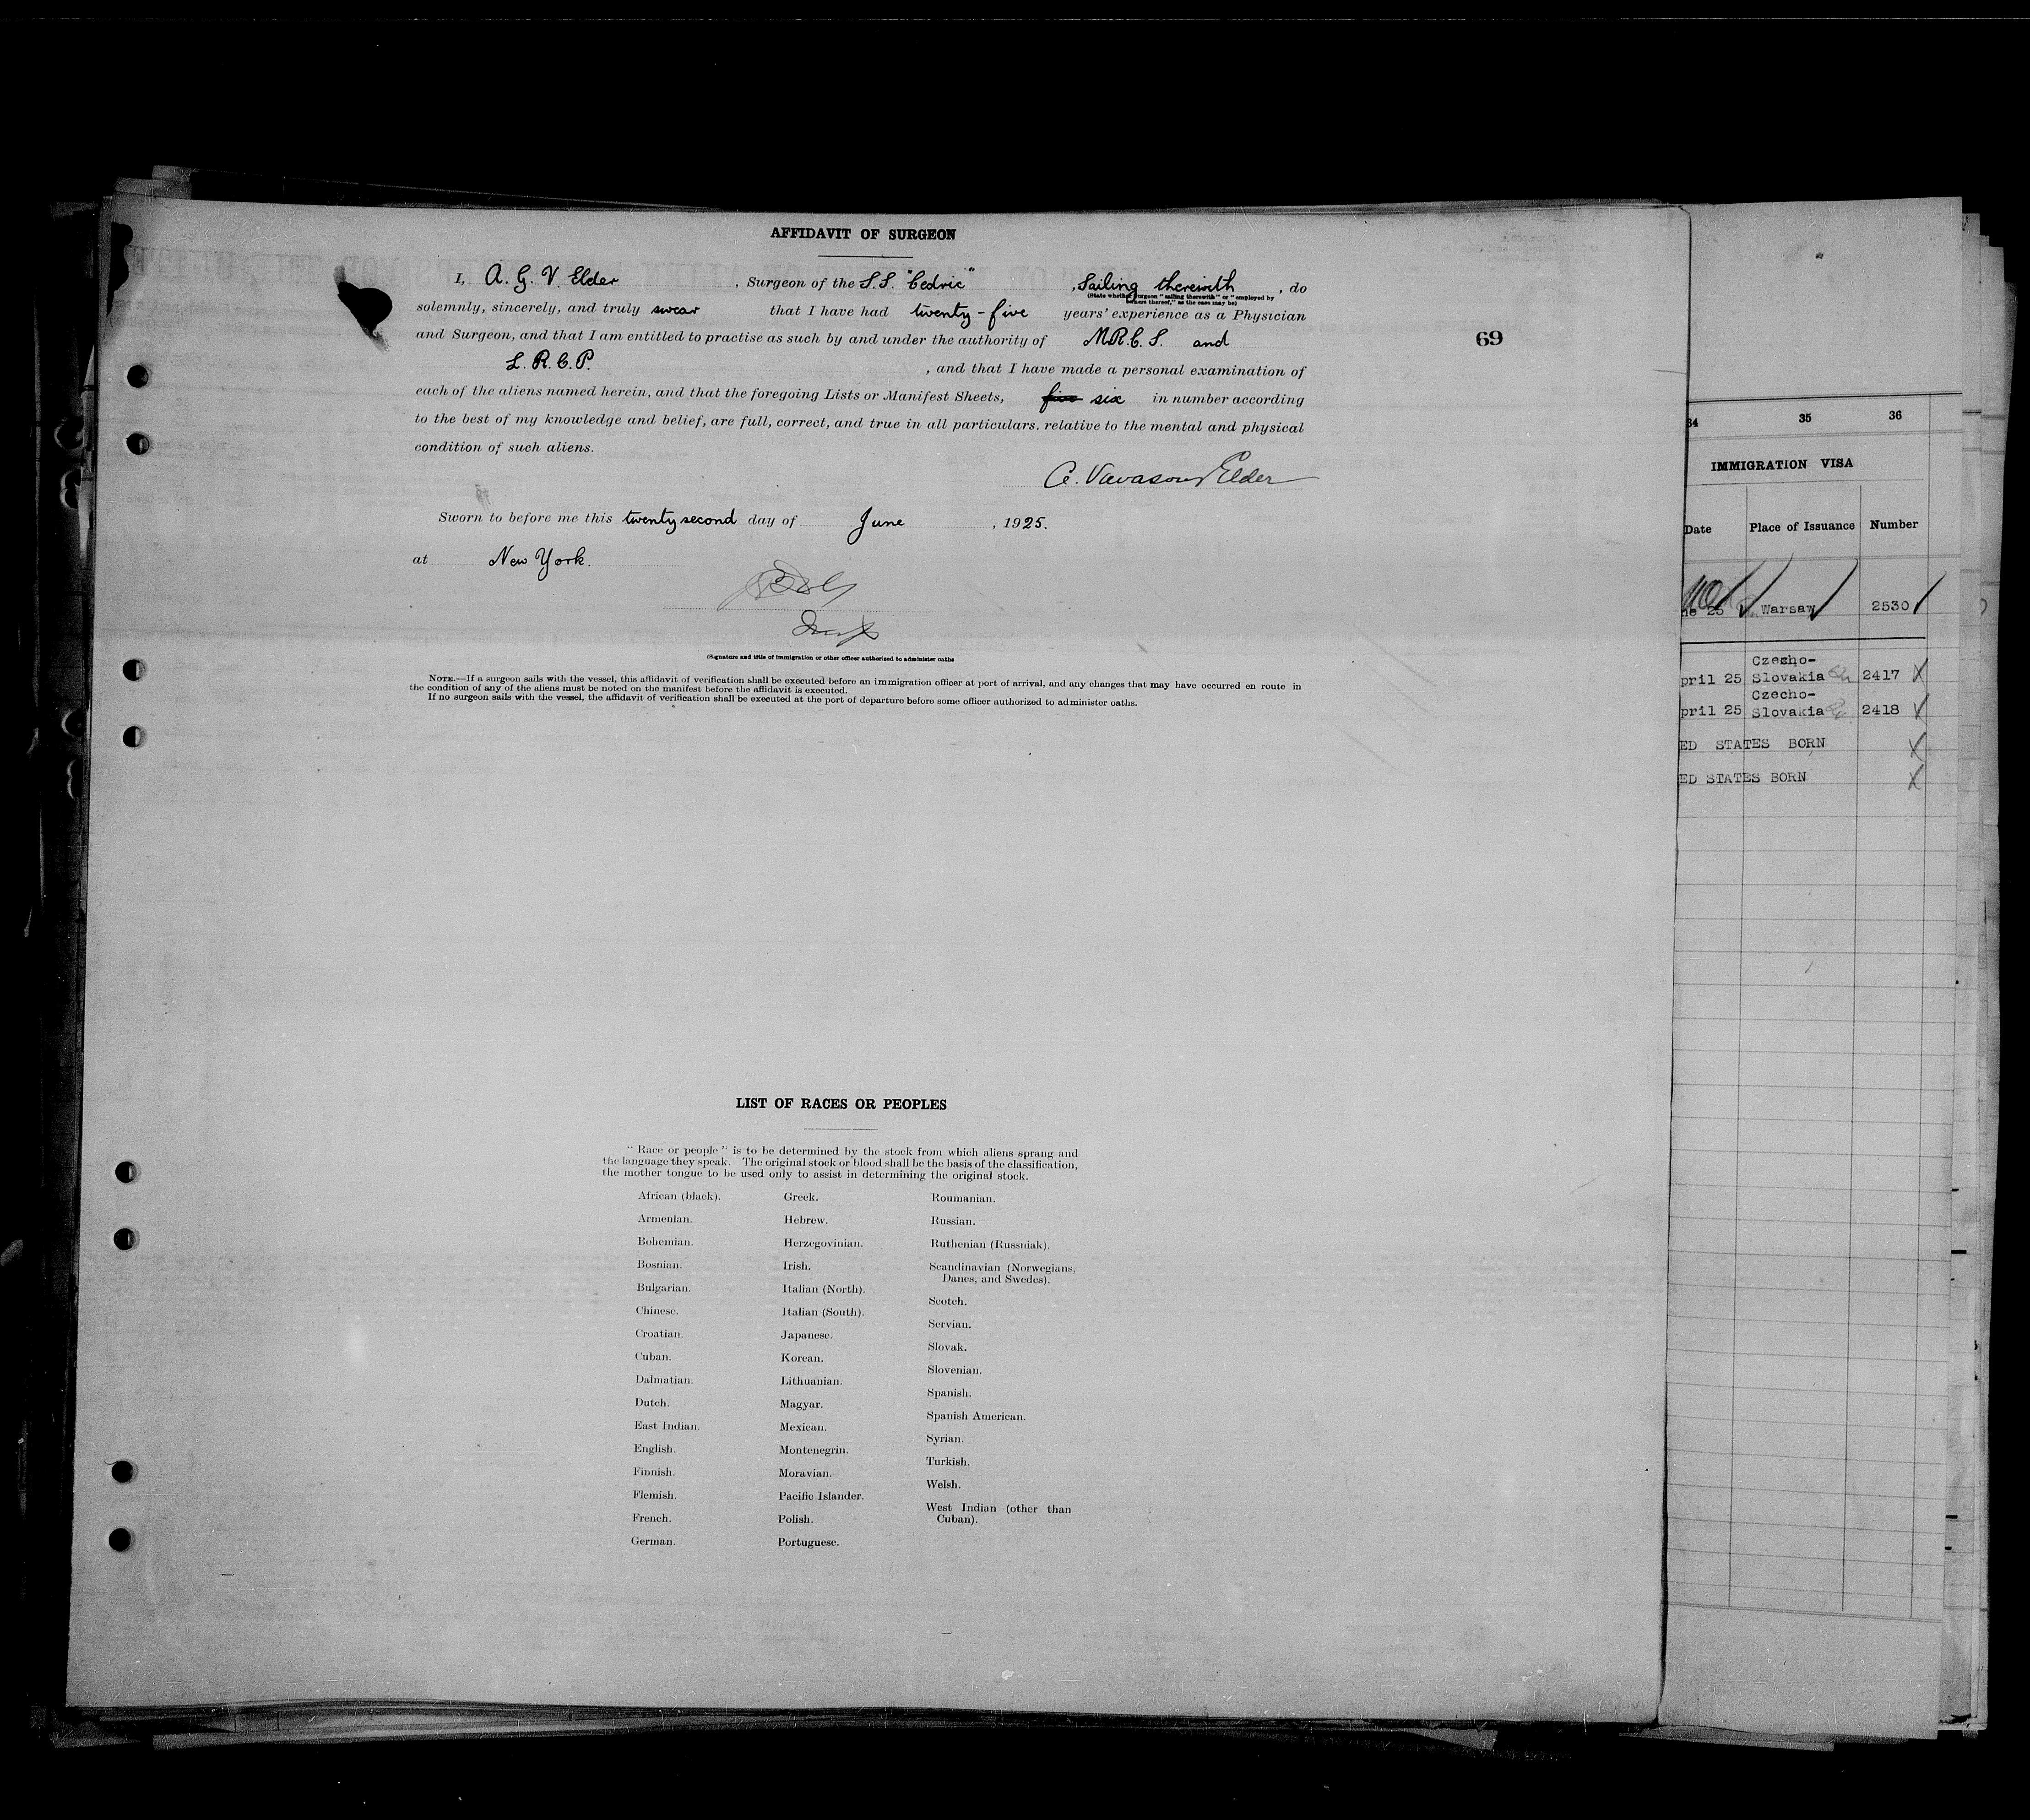 AFFIDAVIT OF SURGEON
I, A. G. V. Elder , Surgeon of the S.S. "Cedric" , Sailing therewith , do
(State whether surgeon "sailing therewith" or "employed by
owners thereof," as the case may be)
solemnly, sincerely, and truly swear that I have had twenty-five years' experience as a Physician
and Surgeon, and that I am entitled to practise as such by and under the authority of M.R.C.S. and
L.R.C.P. , and that I have made a personal examination of
each of the aliens named herein, and that the foregoing Lists or Manifest Sheets, five six in number according
to the best of my knowledge and belief, are full, correct, and true in all particulars, relative to the mental and physical
condition of such aliens.
A. Vavasour Elder
Sworn to before me this twenty second day of June , 1925.
at New York.
(Signature and title of immigration or other officer authorized to administer oaths
NOTE.—If a surgeon sails with the vessel, this affidavit of verification shall be executed before an immigration officer at port of arrival, and any changes that may have occurred en route in
the condition of any of the aliens must be noted on the manifest before the affidavit is executed.
If no surgeon sails with the vessel, the affidavit of verification shall be executed at the port of departure before some officer authorized to administer oaths.
69
LIST OF RACES OR PEOPLES
"Race or people" is to be determined by the stock from which aliens sprang and
the language they speak. The original stock or blood shall be the basis of the classification,
the mother tongue to be used only to assist in determining the original stock.
African (black).
Armenian.
Bohemian.
Bosnian.
Bulgarian.
Chinese.
Croatian.
Cuban.
Dalmatian.
Dutch.
East Indian.
English.
Finnish.
Flemish.
French.
German.
Greek.
Hebrew.
Herzegovinian.
Irish.
Italian (North).
Italian (South).
Japanese.
Korean.
Lithuanian.
Magyar.
Mexican.
Montenegrin.
Moravian.
Pacific Islander.
Polish.
Portuguese.
Roumanian.
Russian.
Ruthenian (Russniak).
Scandinavian (Norwegians,
Danes, and Swedes).
Scotch.
Servian.
Slovak.
Slovenian.
Spanish.
Spanish American.
Syrian.
Turkish.
Welsh.
West Indian (other than
Cuban).
34 35 36
IMMIGRATION VISA
Date Place of Issuance Number
ne 25 Warsaw 2530
Czecho-
pril 25 Slovakia 2417
Czecho-
pril 25 Slovakia 2418
ED STATES BORN
ED STATES BORN